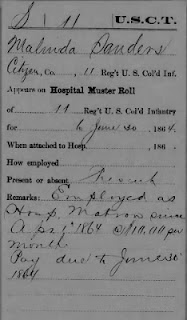 S | 11 | U.S.C.T.
Malinda Sanders
Citzen, Co. , 11 Reg't U. S. Col'd Inf.
Appears on Hospital Muster Roll
of 11 Reg't U. S. Col'd Infantry
for to June 30, 1864.
When attached to Hosp. , 186 .
How employed
Present or absent Present
Remarks: Employed as
Hosp. Matron since
Apr 1st 1864 per
month
Pay due to June 30"
1864